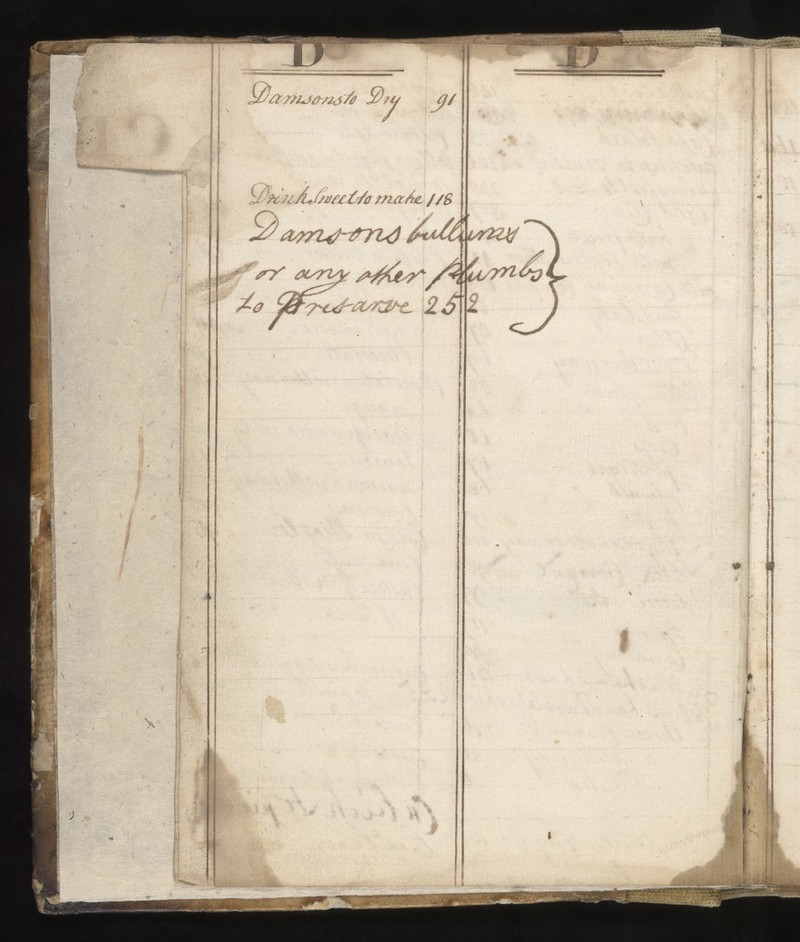 D
D
Damsons to Dry 91
Drink Sweet to make 118
Damsons bullums
or any other Plumbs
to Presarve 252